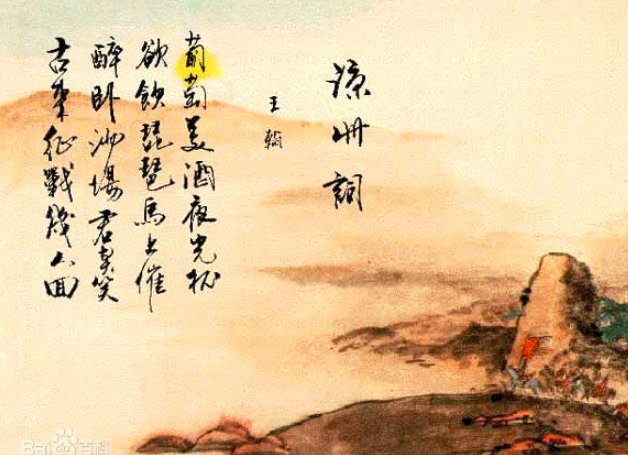 涼州詞
王翰
葡萄美酒夜光杯
欲飲琵琶馬上催
醉卧沙場君莫笑
古來征戰幾人回
Baidu百科